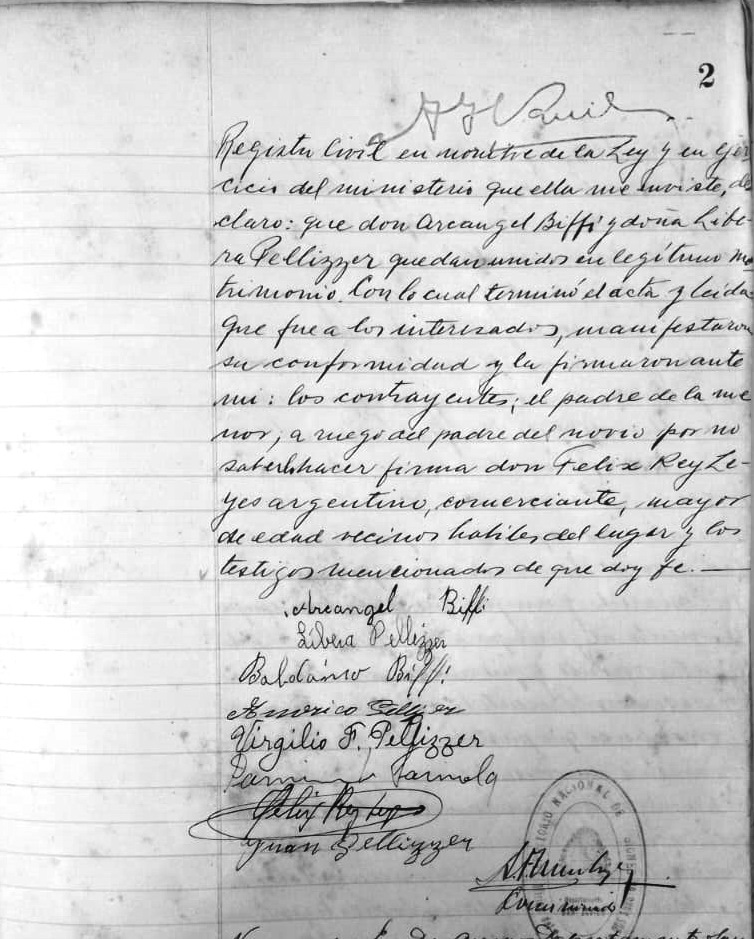 2
Registro Civil en nombre de la Ley y en ejer-
cicio del ministerio que ella me inviste, de
claro: que don Arcangel Biffi y doña Libe-
ra Pellizzer quedan unidos en legítimo ma
trimonio. Con lo cual terminó el acta y leida
que fue a los interesados, manifestaron
su conformidad y la firmaron ante
mi: los contrayentes; el padre de la me
nor; a ruego del padre del novio por no
saberlo hacer firma don Felix Rey Le-
yes argentino, comerciante, mayor
de edad vecinos habiles del lugar y los
testigos mencionados de que doy fe.—
Arcangel Biffi
Líbera Pellizzer
Biffi
Americo Pellizzer
Virgilio F. Pellizzer
Felix Rey Leyes
Juan Pellizzer
NACIONAL DE